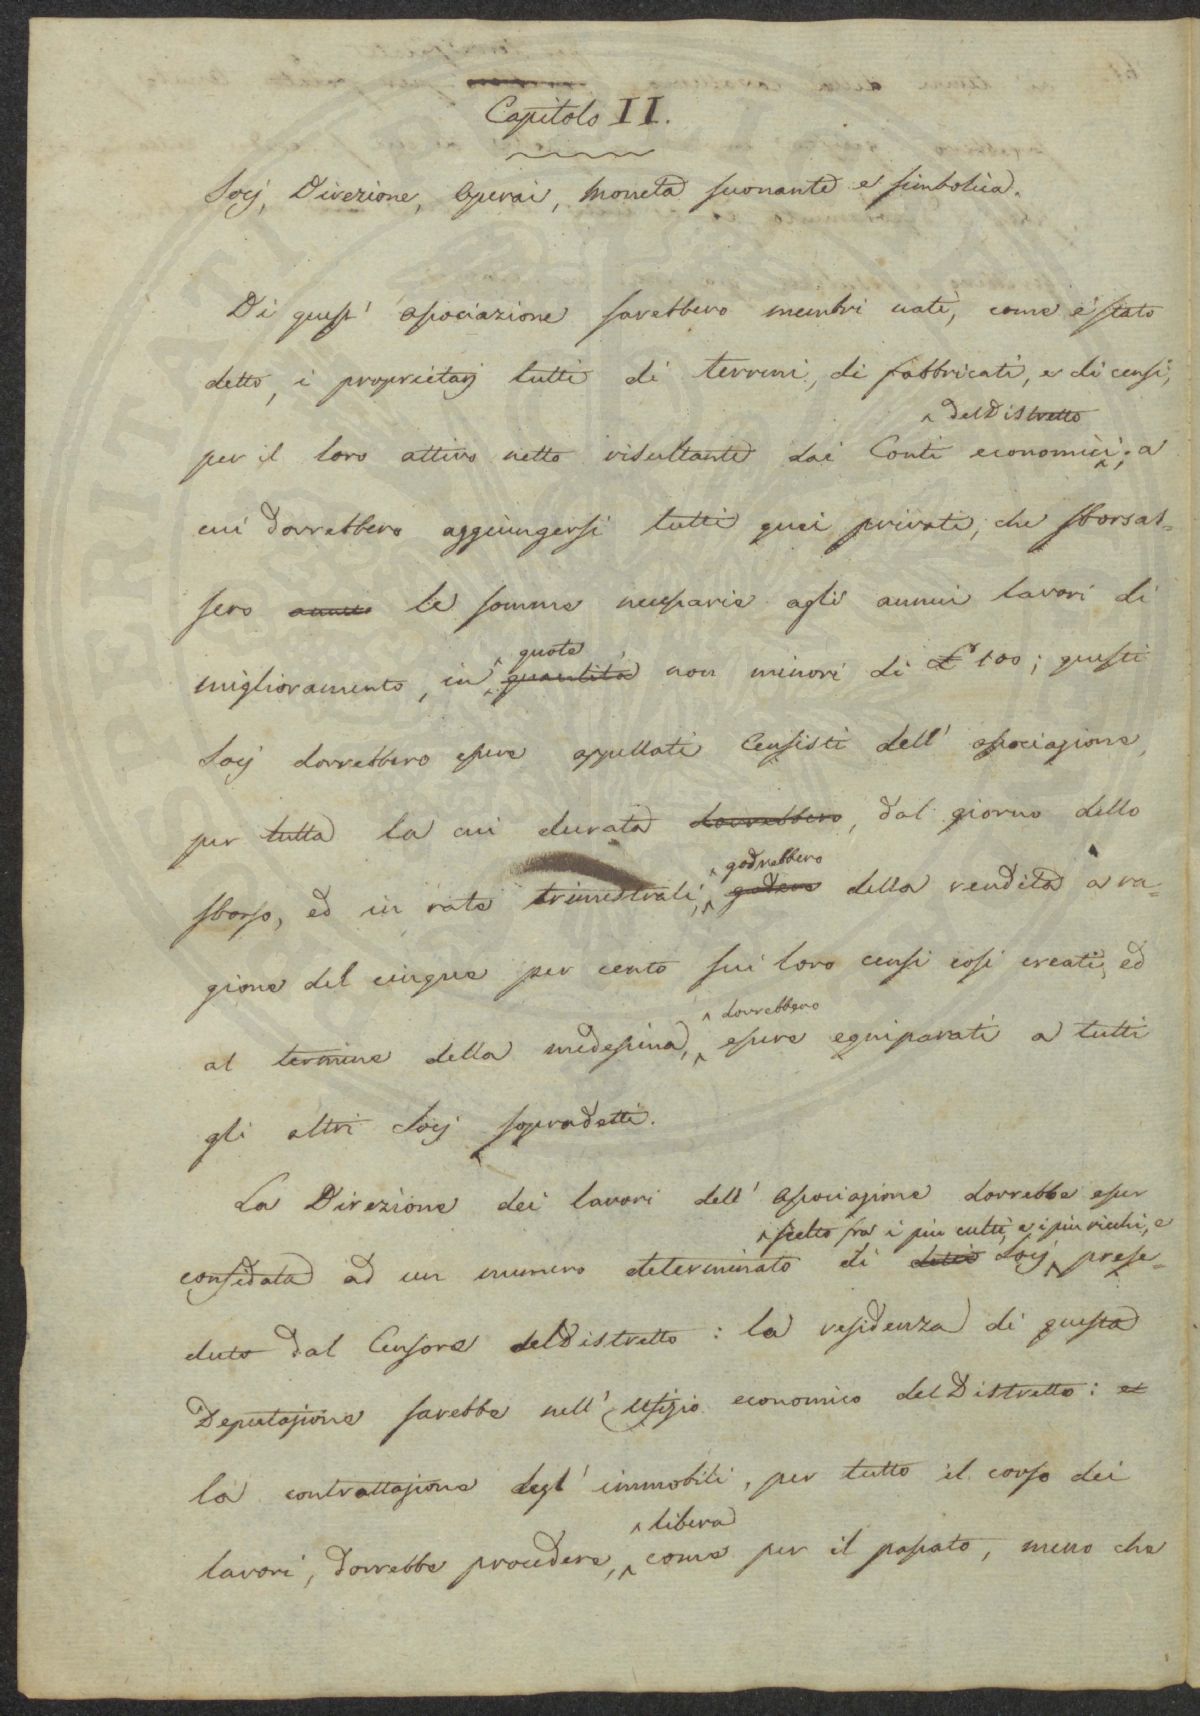 Capitolo II.
Socj, Direzione, Operai, Moneta suonante e simbolica.
Di quest' associazione sarebbero membri nati, come è stato
detto, i proprietarj tutti di terreni, di fabbricati, e di censi,
^ del Distretto
per il loro attivo netto risultante dai Conti economici ^; a
cui dovrebbero aggiungersi tutti quei privati, che sborsas=
sero le somme necessarie agli annui lavori di
^ quote
miglioramento, in ^ quantità non minori di £ 100; questi
Socj dovrebbero essere appellati Censisti dell' associazione,
per tutta la cui durata dovrebbero, dal giorno dello
^ godrebbero
sborso, ed in rate trimestrali, ^ godere della rendita a ra=
gione del cinque per cento sui loro censi così creati, ed
^ dovrebbero
al termine della medesima, ^ essere equiparati a tutti
gli altri Socj sopradetti.
La Direzione dei lavori dell' Associazione dovrebbe esser
^ scelto fra i più culti, e i più ricchi, e
confidata ad un numero determinato di detti Socj ^ prese=
duto dal Censore del Distretto: la residenza di questa
Deputazione sarebbe nell' Uffizio economico del Distretto: e
la contrattazione degl' immobili, per tutto il corso dei
^ libera
lavori, dovrebbe procedere, ^ come per il passato, meno che